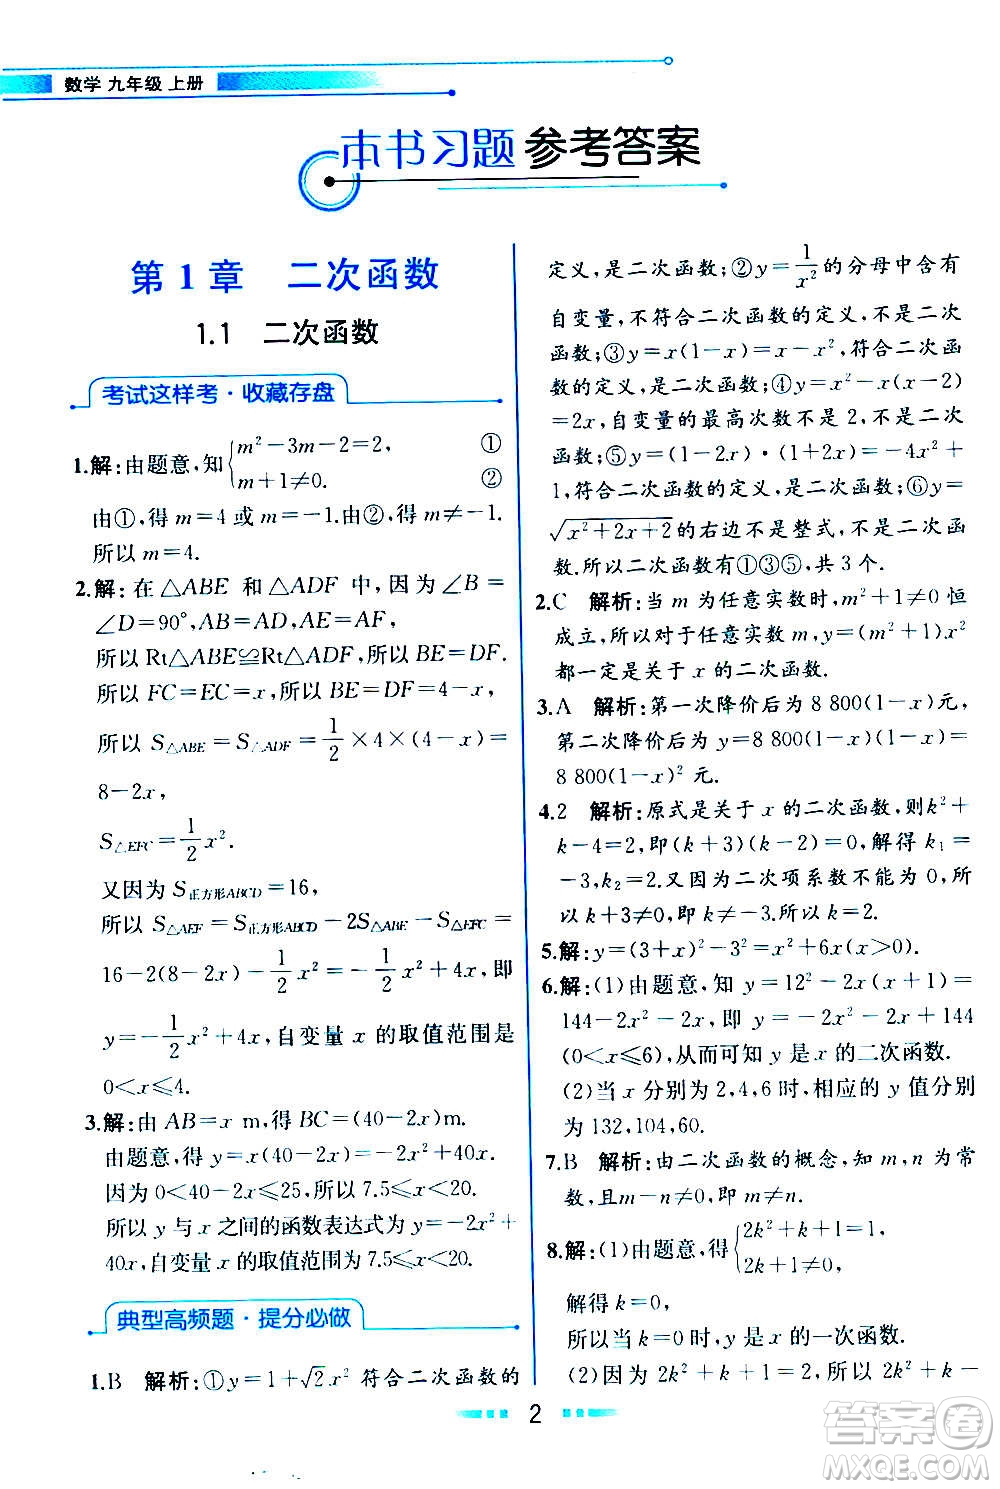 数学 九年级 上册
本书习题 参考答案
第 1 章 二次函数
1.1 二次函数
考试这样考·收藏存盘
1.解:由题意,知{m²-3m-2=2, ①
m+1≠0. ②
由①,得 m=4 或 m=-1.由②,得 m≠-1.
所以 m=4.
2.解:在△ABE 和△ADF 中,因为∠B=
∠D=90°,AB=AD,AE=AF,
所以 Rt△ABE≌Rt△ADF.所以 BE=DF.
所以 FC=EC=x,所以 BE=DF=4-x,
所以 S△ABE=S△ADF=1/2×4×(4-x)=
8-2x,
S△EFC=1/2x².
又因为 S正方形ABCD=16,
所以 S△AEF=S正方形ABCD-2S△ABE-S△EFC=
16-2(8-2x)-1/2x²=-1/2x²+4x,即
y=-1/2x²+4x,自变量 x 的取值范围是
0<x≤4.
3.解:由 AB=x m,得 BC=(40-2x)m.
由题意,得 y=x(40-2x)=-2x²+40x.
因为 0<40-2x≤25,所以 7.5≤x<20.
所以 y 与 x 之间的函数表达式为 y=-2x²+
40x,自变量 x 的取值范围为 7.5≤x<20.
典型高频题·提分必做
1.B 解析:①y=1+√2x² 符合二次函数的
定义,是二次函数;②y=1/x²的分母中含有
自变量,不符合二次函数的定义,不是二次
函数;③y=x(1-x)=x-x²,符合二次函
数的定义,是二次函数;④y=x²-x(x-2)
=2x,自变量的最高次数不是 2,不是二次
函数;⑤y=(1-2x)·(1+2x)=-4x²+
1,符合二次函数的定义,是二次函数;⑥y=
√x²+2x+2的右边不是整式,不是二次函
数.所以二次函数有①③⑤,共 3 个.
2.C 解析:当 m 为任意实数时,m²+1≠0 恒
成立,所以对于任意实数 m,y=(m²+1)x²
都一定是关于 x 的二次函数.
3.A 解析:第一次降价后为 8 800(1-x)元,
第二次降价后为 y=8 800(1-x)(1-x)=
8 800(1-x)² 元.
4.2 解析:原式是关于 x 的二次函数,则k²+
k-4=2,即(k+3)(k-2)=0,解得 k₁=
-3,k₂=2.又因为二次项系数不能为 0,所
以 k+3≠0,即 k≠-3.所以 k=2.
5.解:y=(3+x)²-3²=x²+6x(x>0).
6.解:(1)由题意,知 y=12²-2x·x=
144-2x²,即 y=-2x²+144
(0<x≤6),从而可知 y 是 x 的二次函数.
(2)当 x 分别为 2,4,6 时,相应的 y 值分别
为 132,104,60.
7.B 解析:由二次函数的概念,知 m,n 为常
数,且m-n≠0,即 m≠n.
8.解:(1)由题意,得{2k²+k+1=1,
2k+1≠0,
解得 k=0,
所以当 k=0时,y 是x的一次函数.
(2)因为 2k²+k+1=2,所以 2k²+k-
2
答案圈
MXQE.COM